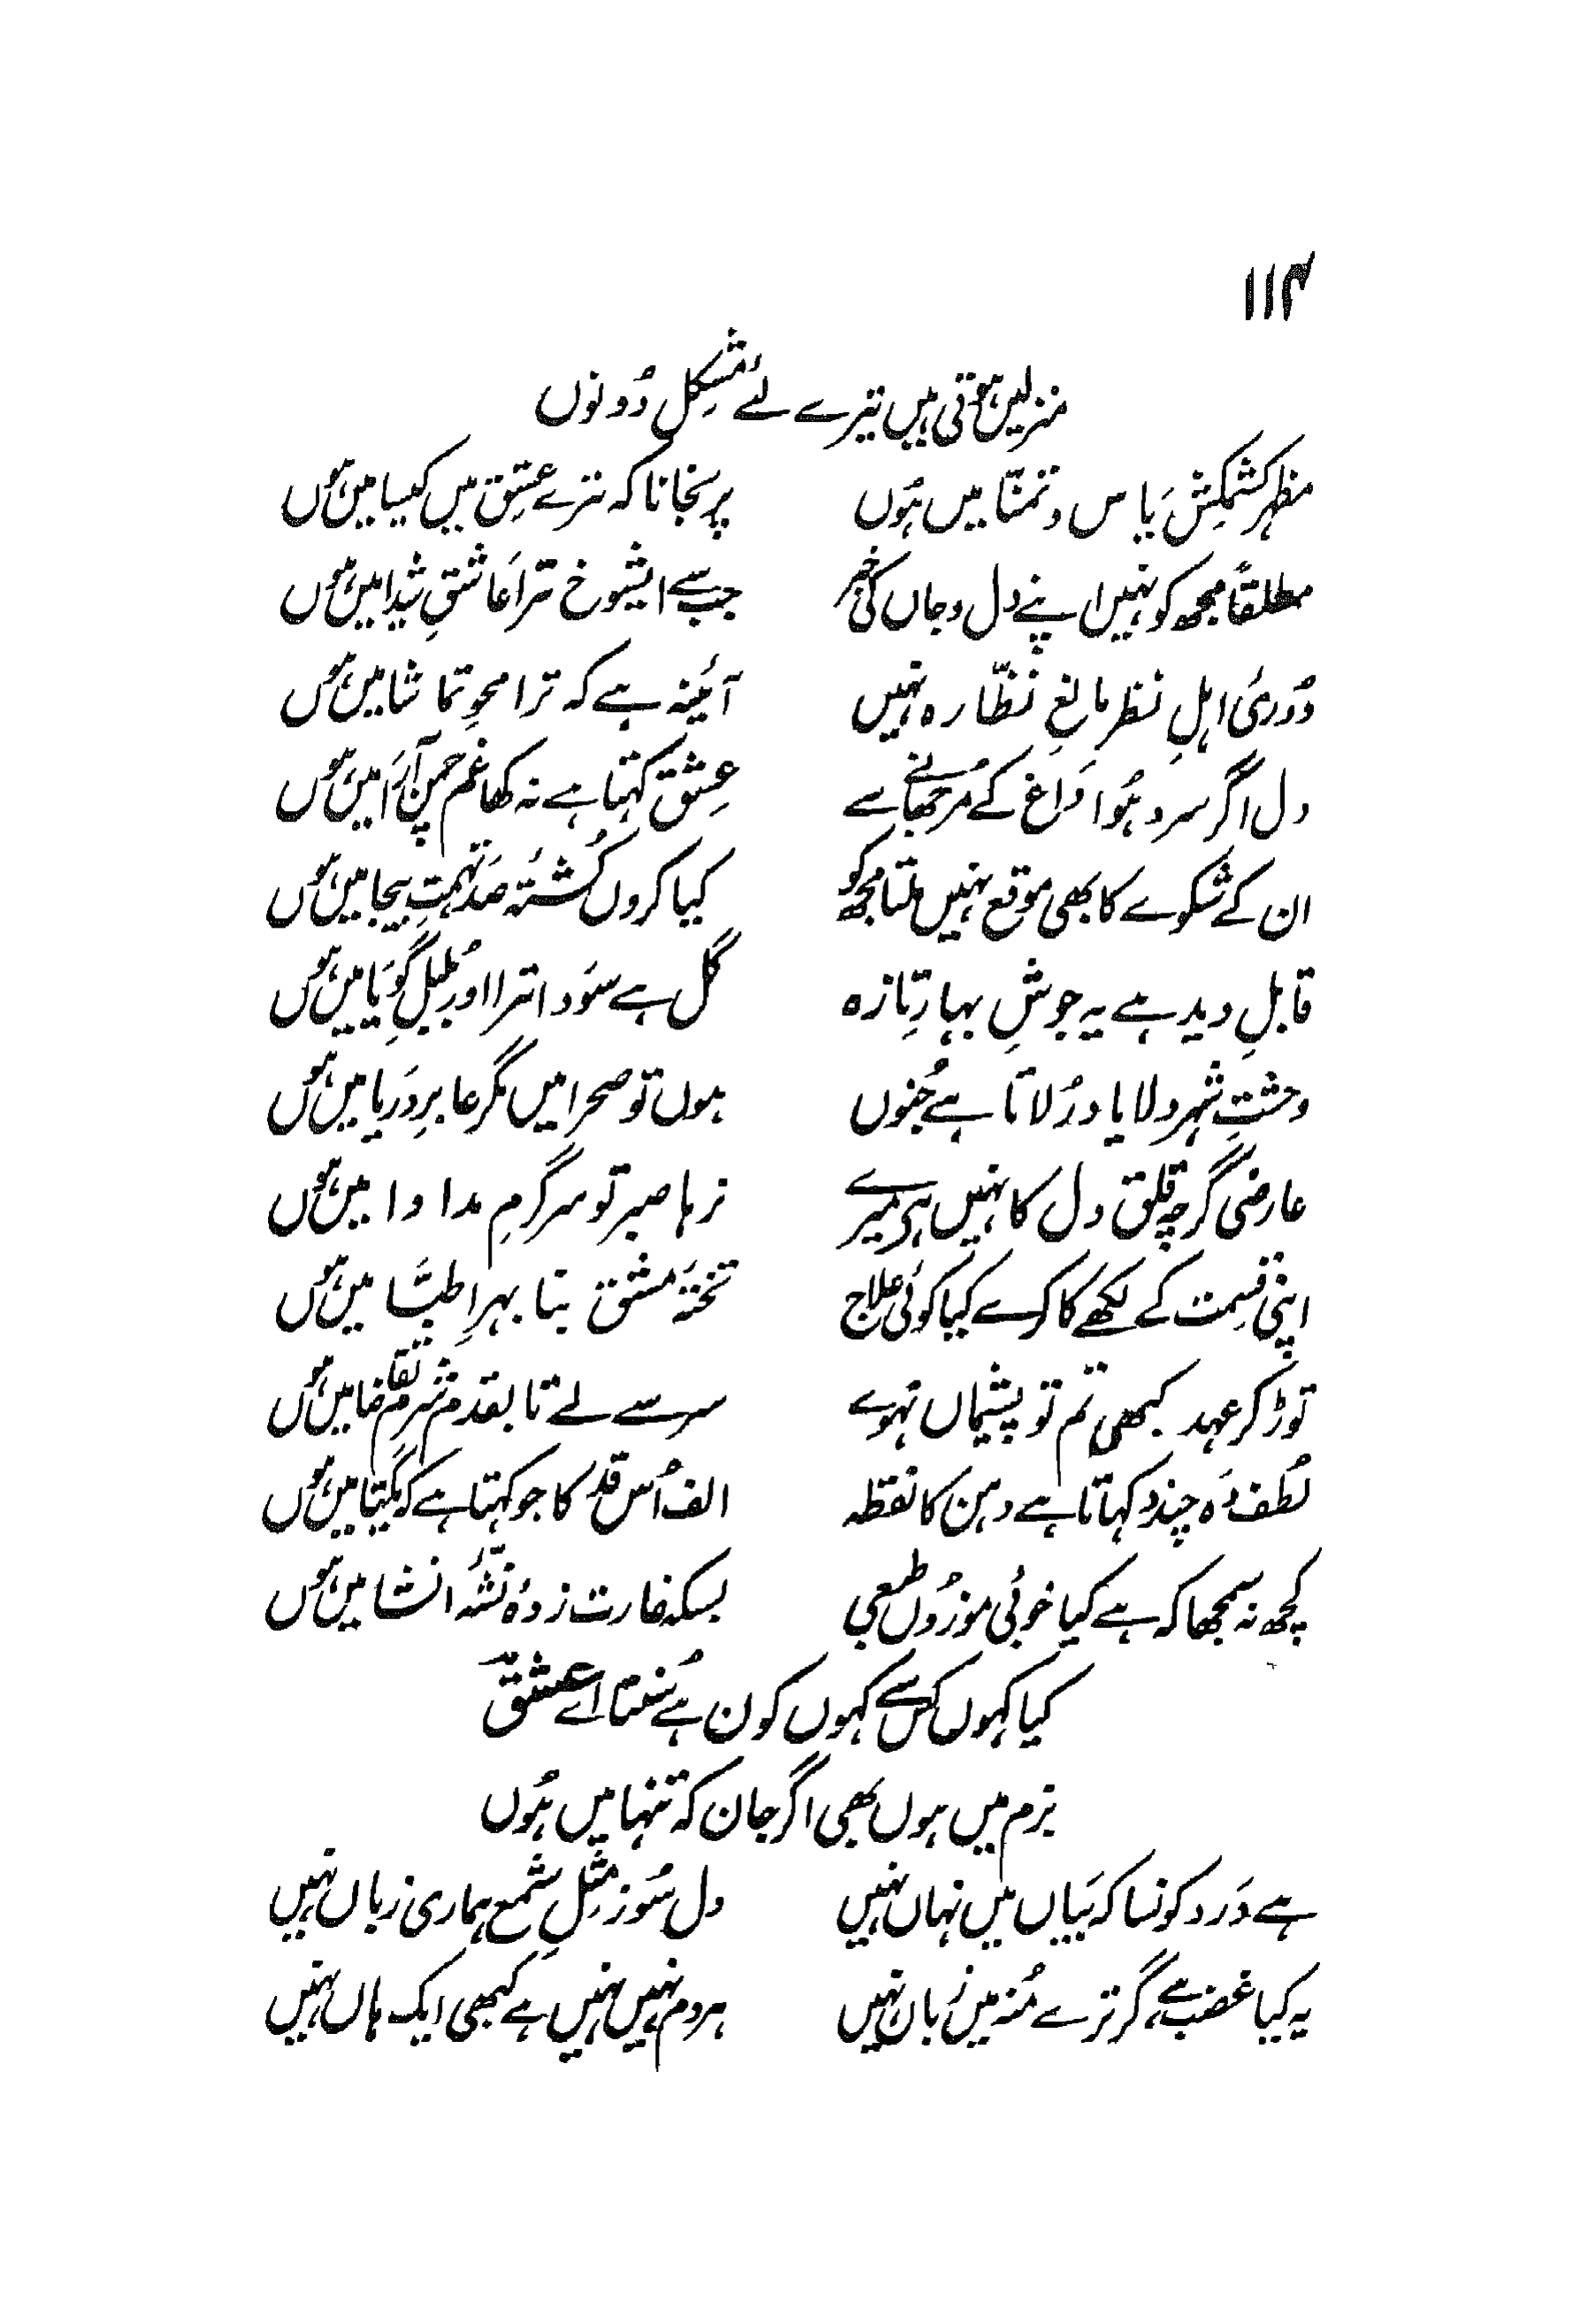 ۱۱۴
منزلیں ہوتی ہیں تیرے لئے مُشکِل دُونوں
مظہرِ کشمکشِ یَاس و تمنّا میں ہُوں پر نجانا کہ ترے عِشق میں کیسا میں ہوں
مطلقاً مجھ کو نہیں اپنے دل و جاں کی خبر جب سے ایشوخ ترا عَاشقِ شیدا میں ہوں
دُوریٔ اہلِ نظر مانعِ نظّارہ نہیں آئینہ ہے کہ ترا محوِ تماشا میں ہوں
دل اگر سرد ہُوا دَاغ کے مُرجھانے سے عِشق کہتا ہے نہ کھا غم چمن آرَا میں ہوں
ان کے شکوے کا بھی موقع نہیں ملتا مجھ کو کیا کروں کُشتۂ صَد تہمتِ بیجا میں ہوں
قابلِ دید ہے یہ جوشِ بہارِ تازہ گل ہے سَودا ترا اور بُلبلِ گویَا میں ہوں
وحشتِ شہر دلا یاد دُلاتا ہے جُنوں ہوں تو صحرا میں مگر عابرِ دَریا میں ہوں
عارضی گرچہ قلق دل کا نہیں ہے میرے نرہا صبر تو سرگرمِ مداوا میں ہوں
اپنی قسِمت کے لکھے کا کرے کیا کوئی علاج تختۂ مشق بنا بہرِ اطبّا میں ہوں
توڑ کر عہد کبھی تم تو پشیماں نہوے سر سے لے تا بقدم شرمِ تقاضا میں ہوں
لُطف دَہ چند دکہاتا ہے دہن کا نقطہ الف اُس قد کا جو کہتا ہے کہ یکتا میں ہوں
کچھ نہ سمجھا کہ ہے کیا خوبیٔ موزُوں طبعی بسکہ غارت زدۂ نشّۂ انشا میں ہوں
کیا کہوں کس سے کہوں کون ہے سُنتا اے عشقؔ
بزم میں ہوں بھی اگر جان کہ تنہا میں ہُوں
ہے دَرد کونسا کہ بَیاں میں نہاں نہیں دل سُوز مثلِ شمع ہماری زباں نہیں
یہ کیا غضب ہے گر ترے مُنہ میں زُبان نہیں ہر دم نہیں نہیں ہے کبھی ایک ہاں نہیں